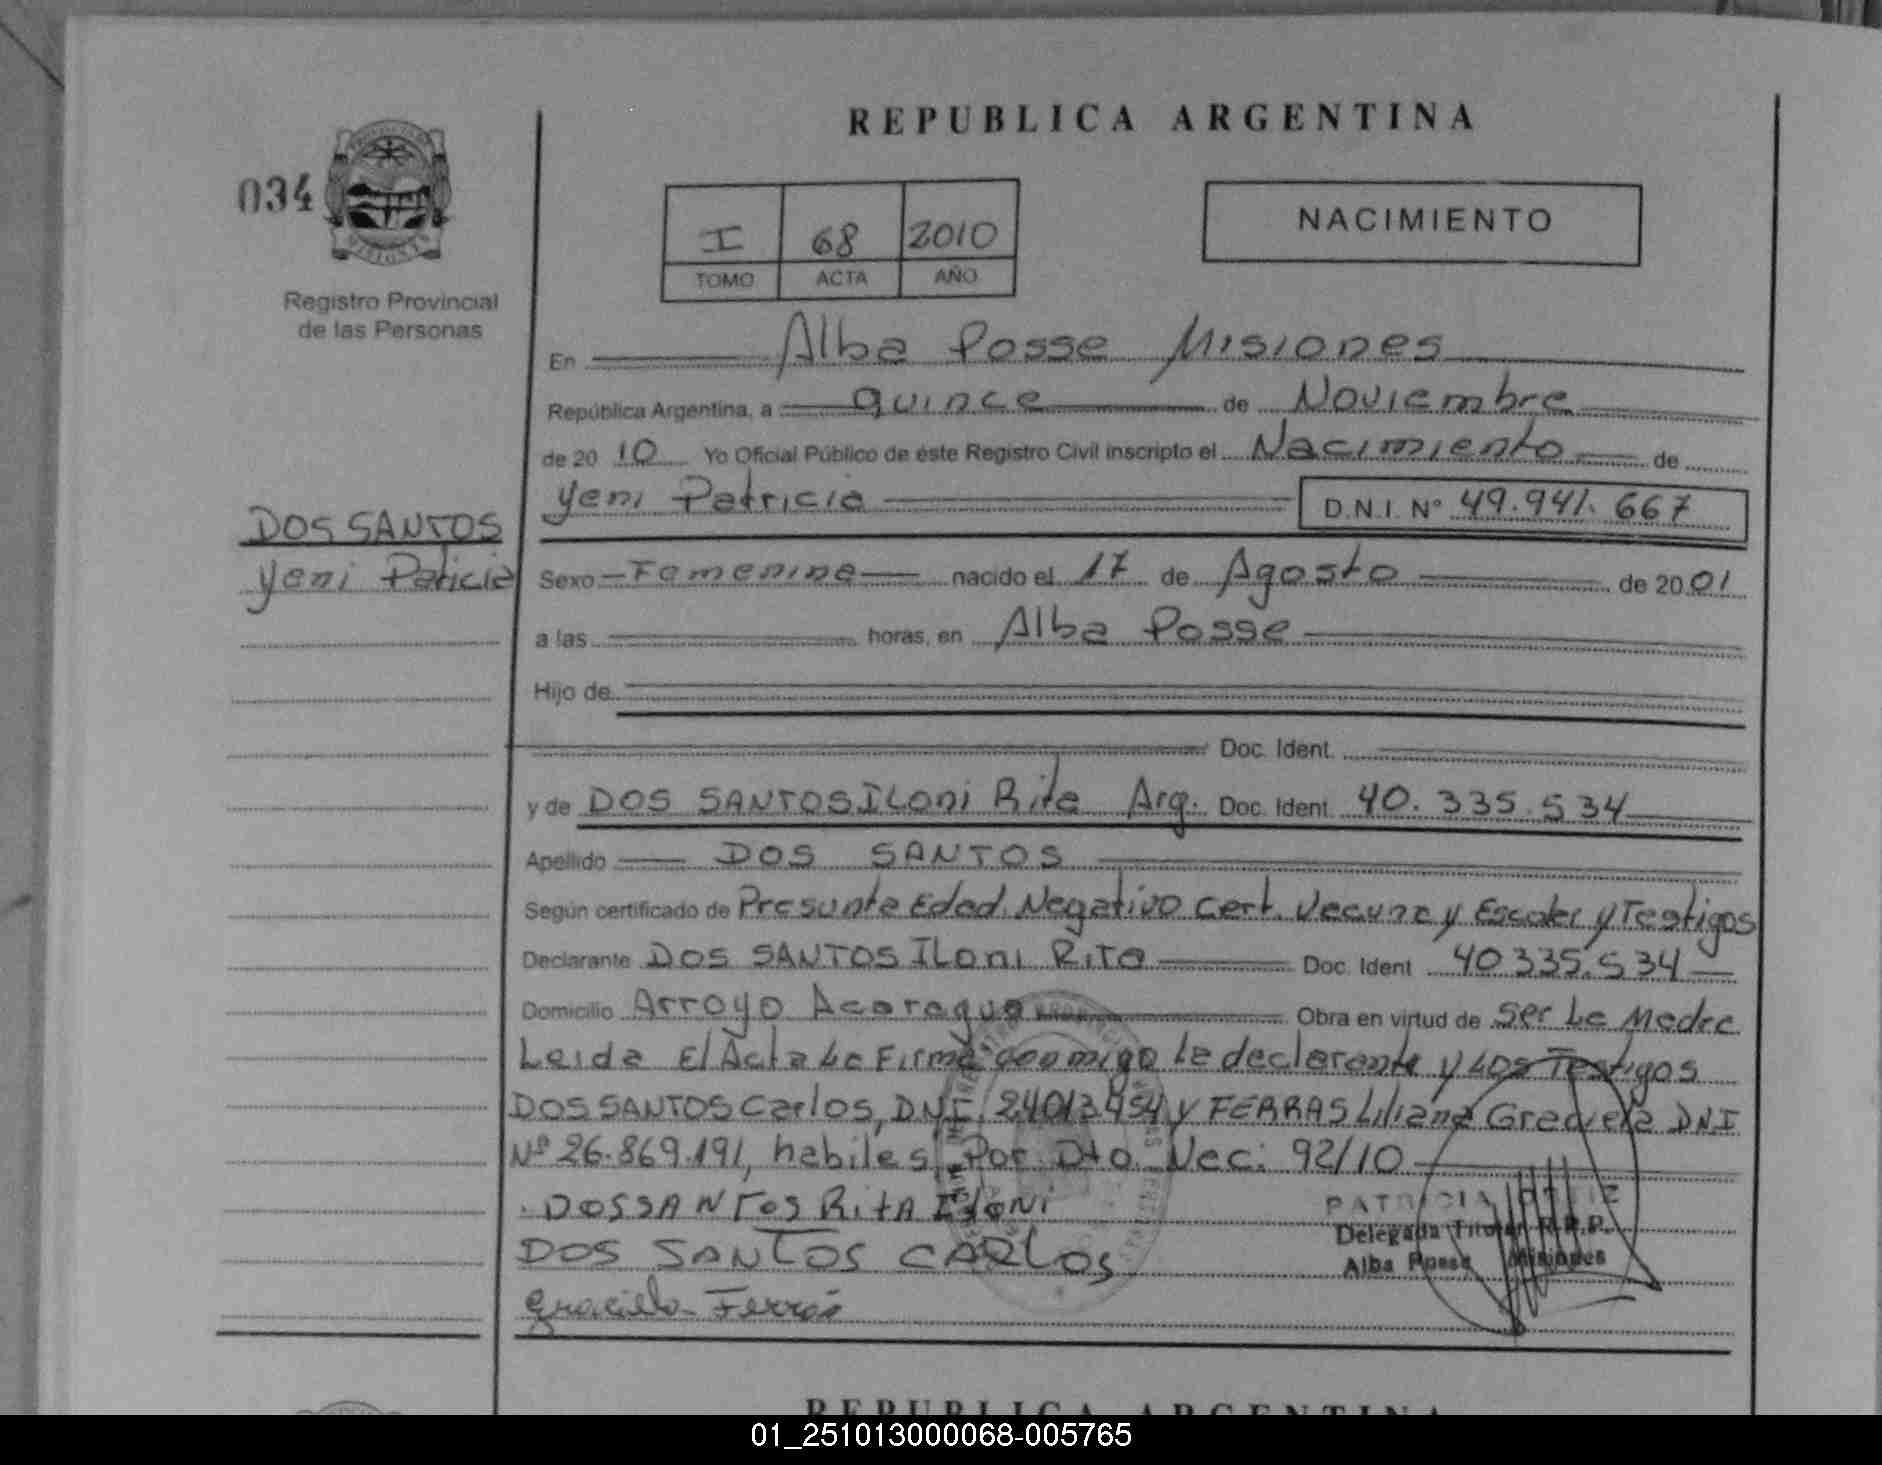 REPUBLICA ARGENTINA
034
I 68 2010
TOMO ACTA AÑO
NACIMIENTO
Registro Provincial
de las Personas
En Alba Posse Misiones
República Argentina, a quince de Noviembre
de 20 10 Yo Oficial Público de éste Registro Civil inscripto el Nacimiento de
Yeni Patricia D.N.I. N° 49.941.667
DOS SANTOS
Yeni Paticia
Sexo Femenino nacido el 17 de Agosto de 20 01
a las horas, en Alba Posse
Hijo de
Doc. Ident.
y de DOS SANTOS ILoni Rita Arg. Doc. Ident. 40.335.534
Apellido DOS SANTOS
Según certificado de Presunta Edad, Negativo Cert. Vacuna y Escolar y Testigos
Declarante DOS SANTOS ILoni RiTa Doc. Ident 40335.534
Domicilio Arroyo Acaragua Obra en virtud de Ser La Madre
Leida El Acta La Firma conmigo la declarante y Los Testigos
DOS SANTOS Carlos, DNI 24013454 y FERRAS Liliana Graciela DNI
Nº 26.869.191, habiles, Por Dto. Nac: 92/10
DOSSANTOS RitA ILONi
DOS SANTOS CARLOS
Graciela Ferrás
PATRICIA ORTIZ
Delegada Titular R.P.P.
Alba Posse Misiones
REPUBLICA ARGENTINA
01_251013000068-005765